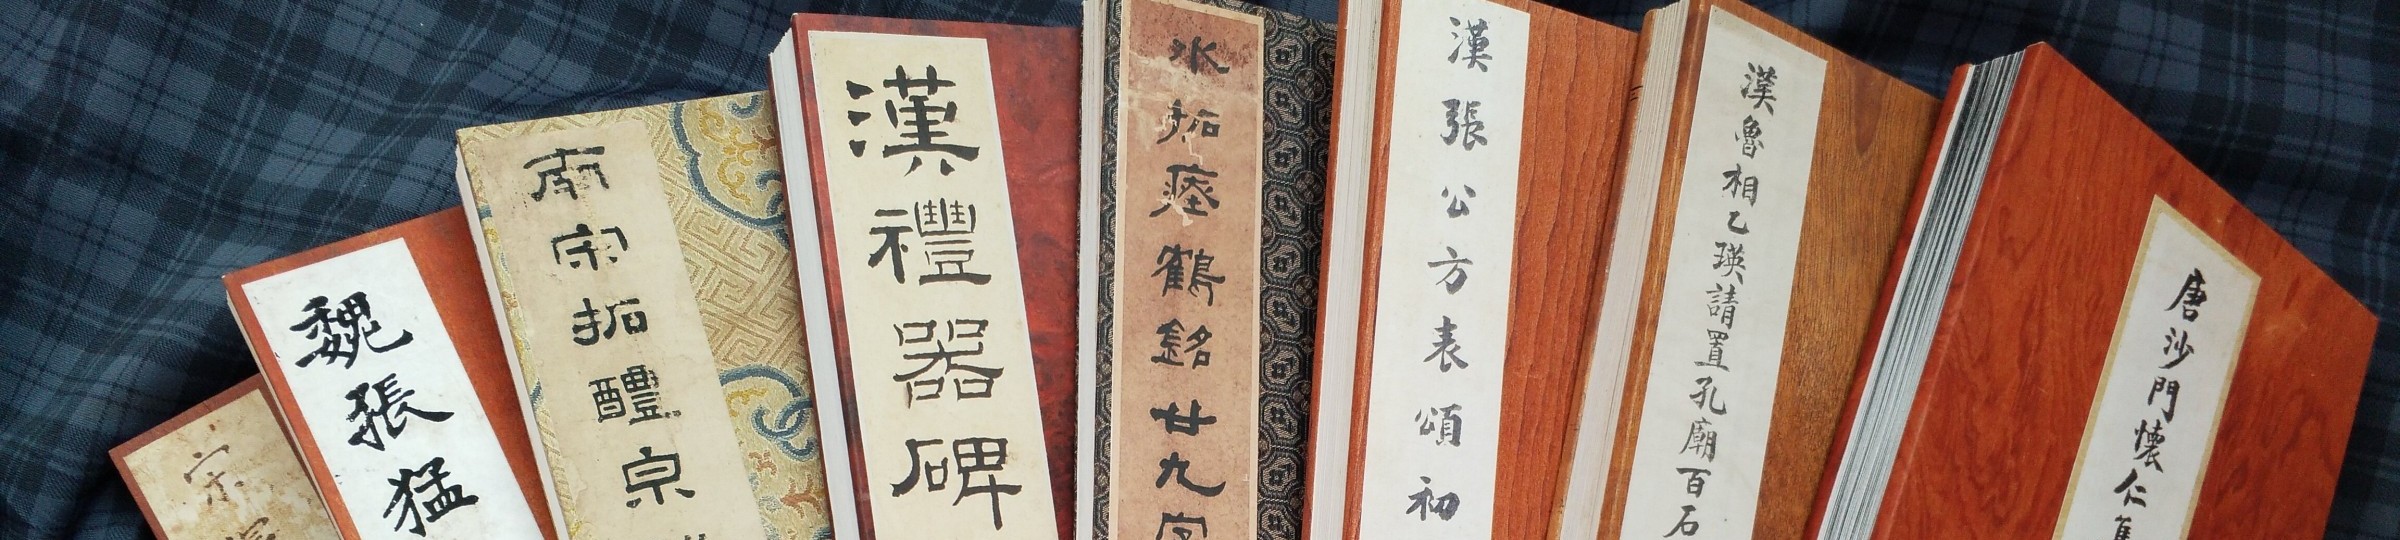 宋
魏張猛
南宋拓醴泉
漢禮器碑
水拓瘞鶴銘廿九字
漢張公方表頌初
漢魯相乙瑛請置孔廟百石
唐沙門懷仁集